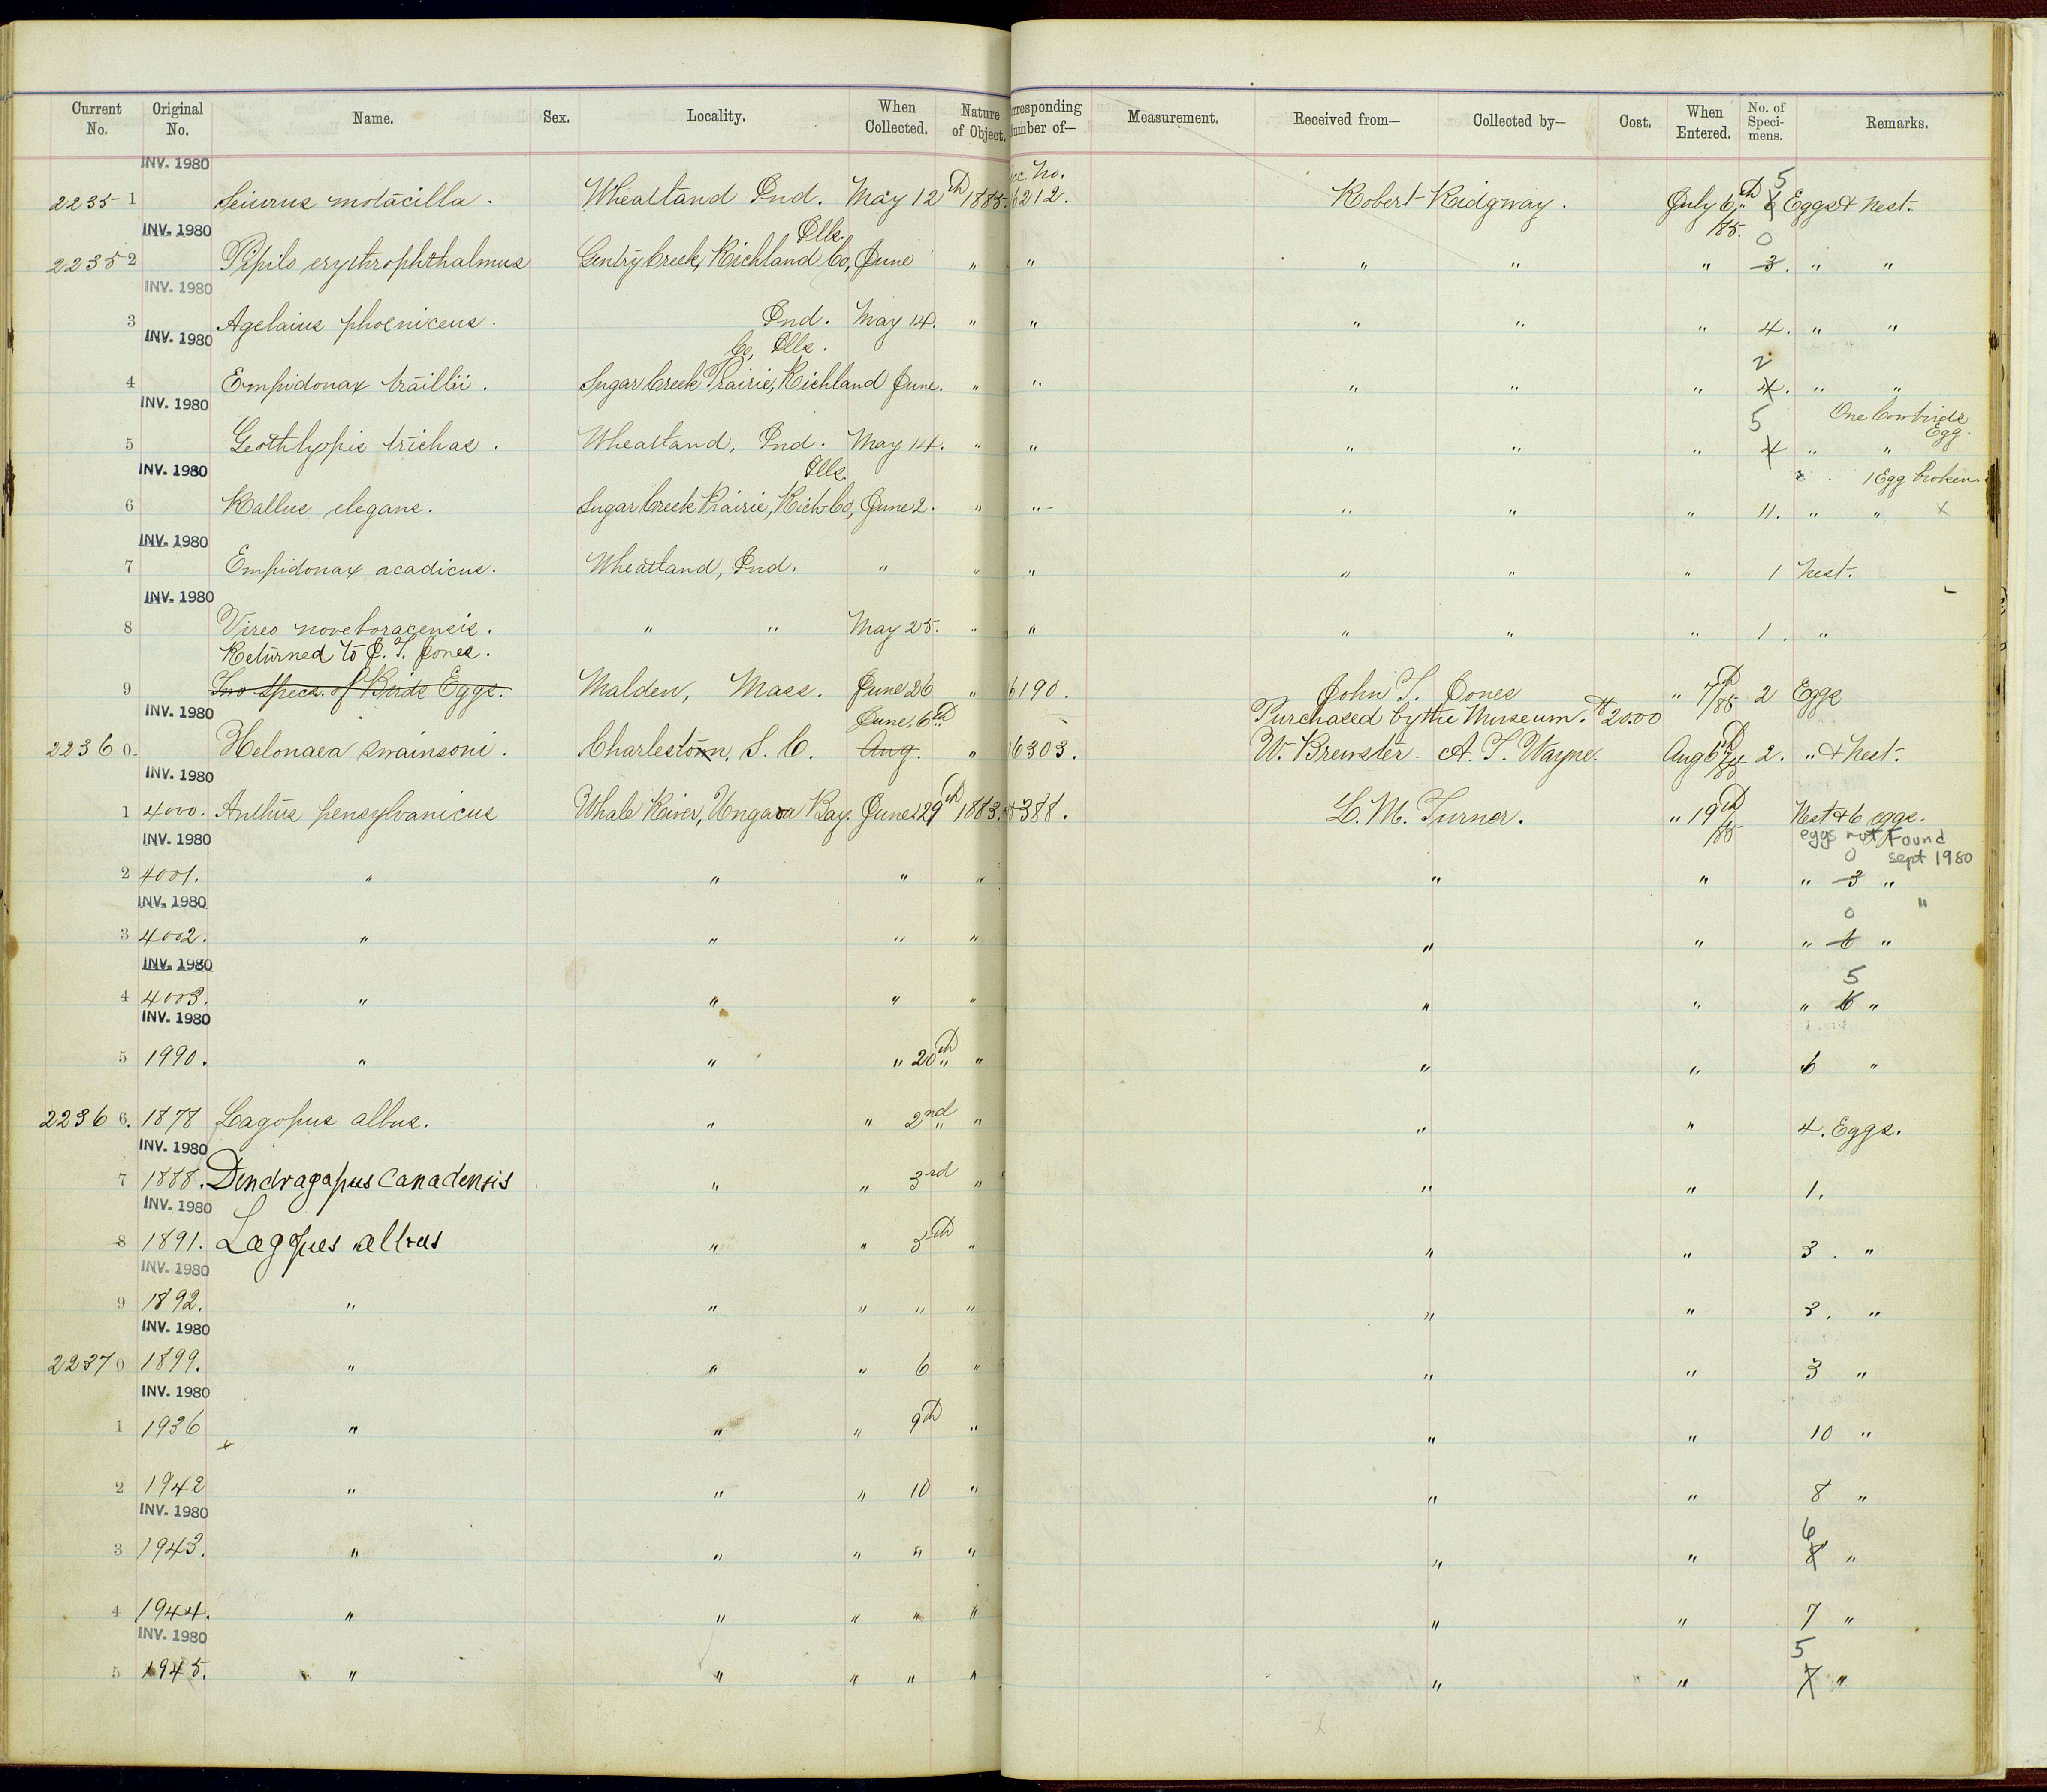 Current No. Original No. Name. Sex. Locality. When Collected. Nature of Object. Corresponding Number of— Measurement. Received from— Collected by— Cost. When Entered. No. of Specimens. Remarks.
INV. 1980
Acc. No.
22351 Seiurus motacilla. Wheatland Ind. May 12th 1885. 6212. Robert Ridgway. July 6th /85. 6 5 Eggs & Nest.
INV. 1980
Ills.
22352 Pipilo erythrophthalmus Gentry Creek, Richland Co, June " " " " " 3. 0 " "
INV. 1980
3 Agelaius phoeniceus. Ind. May 14. " " " " " 4. " "
INV. 1980
Co, Ills.
4 Empidonax traillii. Sugar Creek Prairie, Richland June. " " " " " 4. 2 " "
INV. 1980
One Cowbirds Egg.
5 Geothlypis trichas. Wheatland, Ind. May 14. " " " " " 4 5 " "
INV. 1980
Ills
1 Egg broken.
6 Rallus elegans. Sugar Creek Prairie, Rich Co, June 2. " " " " " 11. " " x
INV. 1980
7 Empidonax acadicus. Wheatland, Ind. " " " " " " 1 Nest.
INV. 1980
8 Vireo noveboracensis. " " May 25. " " " " " 1. "
Returned to J. T. Jones.
9 Two specs. of Birds Eggs. Malden, Mass. June 26 " 6190. John T. Jones " 7th /85 2 Eggs
INV. 1980
June, 6th
Purchased by the Museum. $20.00
22360. Helonaea swainsoni. Charleston, S. C. Aug. " 6303. W. Brewster. A. T. Wayne. Aug 6th /85 2. " & Nest.
INV. 1980
1 4000. Anthus pensylvanicus Whale River, Ungava Bay. June 29th 1883. 388. L. M. Turner. " 19th /85 Nest & 6 eggs.
INV. 1980
eggs not found
sept 1980
2 4001. " " " " " " " 3 0 "
INV. 1980
"
3 4002. " " " " " " " 6 0 "
INV. 1980
4 4003. " " " " " " " 6 5 "
INV. 1980
5 1990. " " " 20th " " " " 6 "
22366. 1878 Lagopus albus. " " 2nd " " " 4. Eggs.
INV. 1980
7 1888. Dendragapus canadensis " " 3rd " " " 1.
INV. 1980
8 1891. Lagopus albus " " 5th " " " 3. "
INV. 1980
9 1892. " " " " " " " 3. "
INV. 1980
22370 1899. " " " 6 " " " 3 "
INV. 1980
1 1936 " " " 9th " " " 10 "
x
2 1942 " " " 10 " " " 8 "
INV. 1980
3 1943. " " " " " " " 8 6 "
4 1944. " " " " " " " 7 "
INV. 1980
5 1945. " " " " " " " 7 5 "